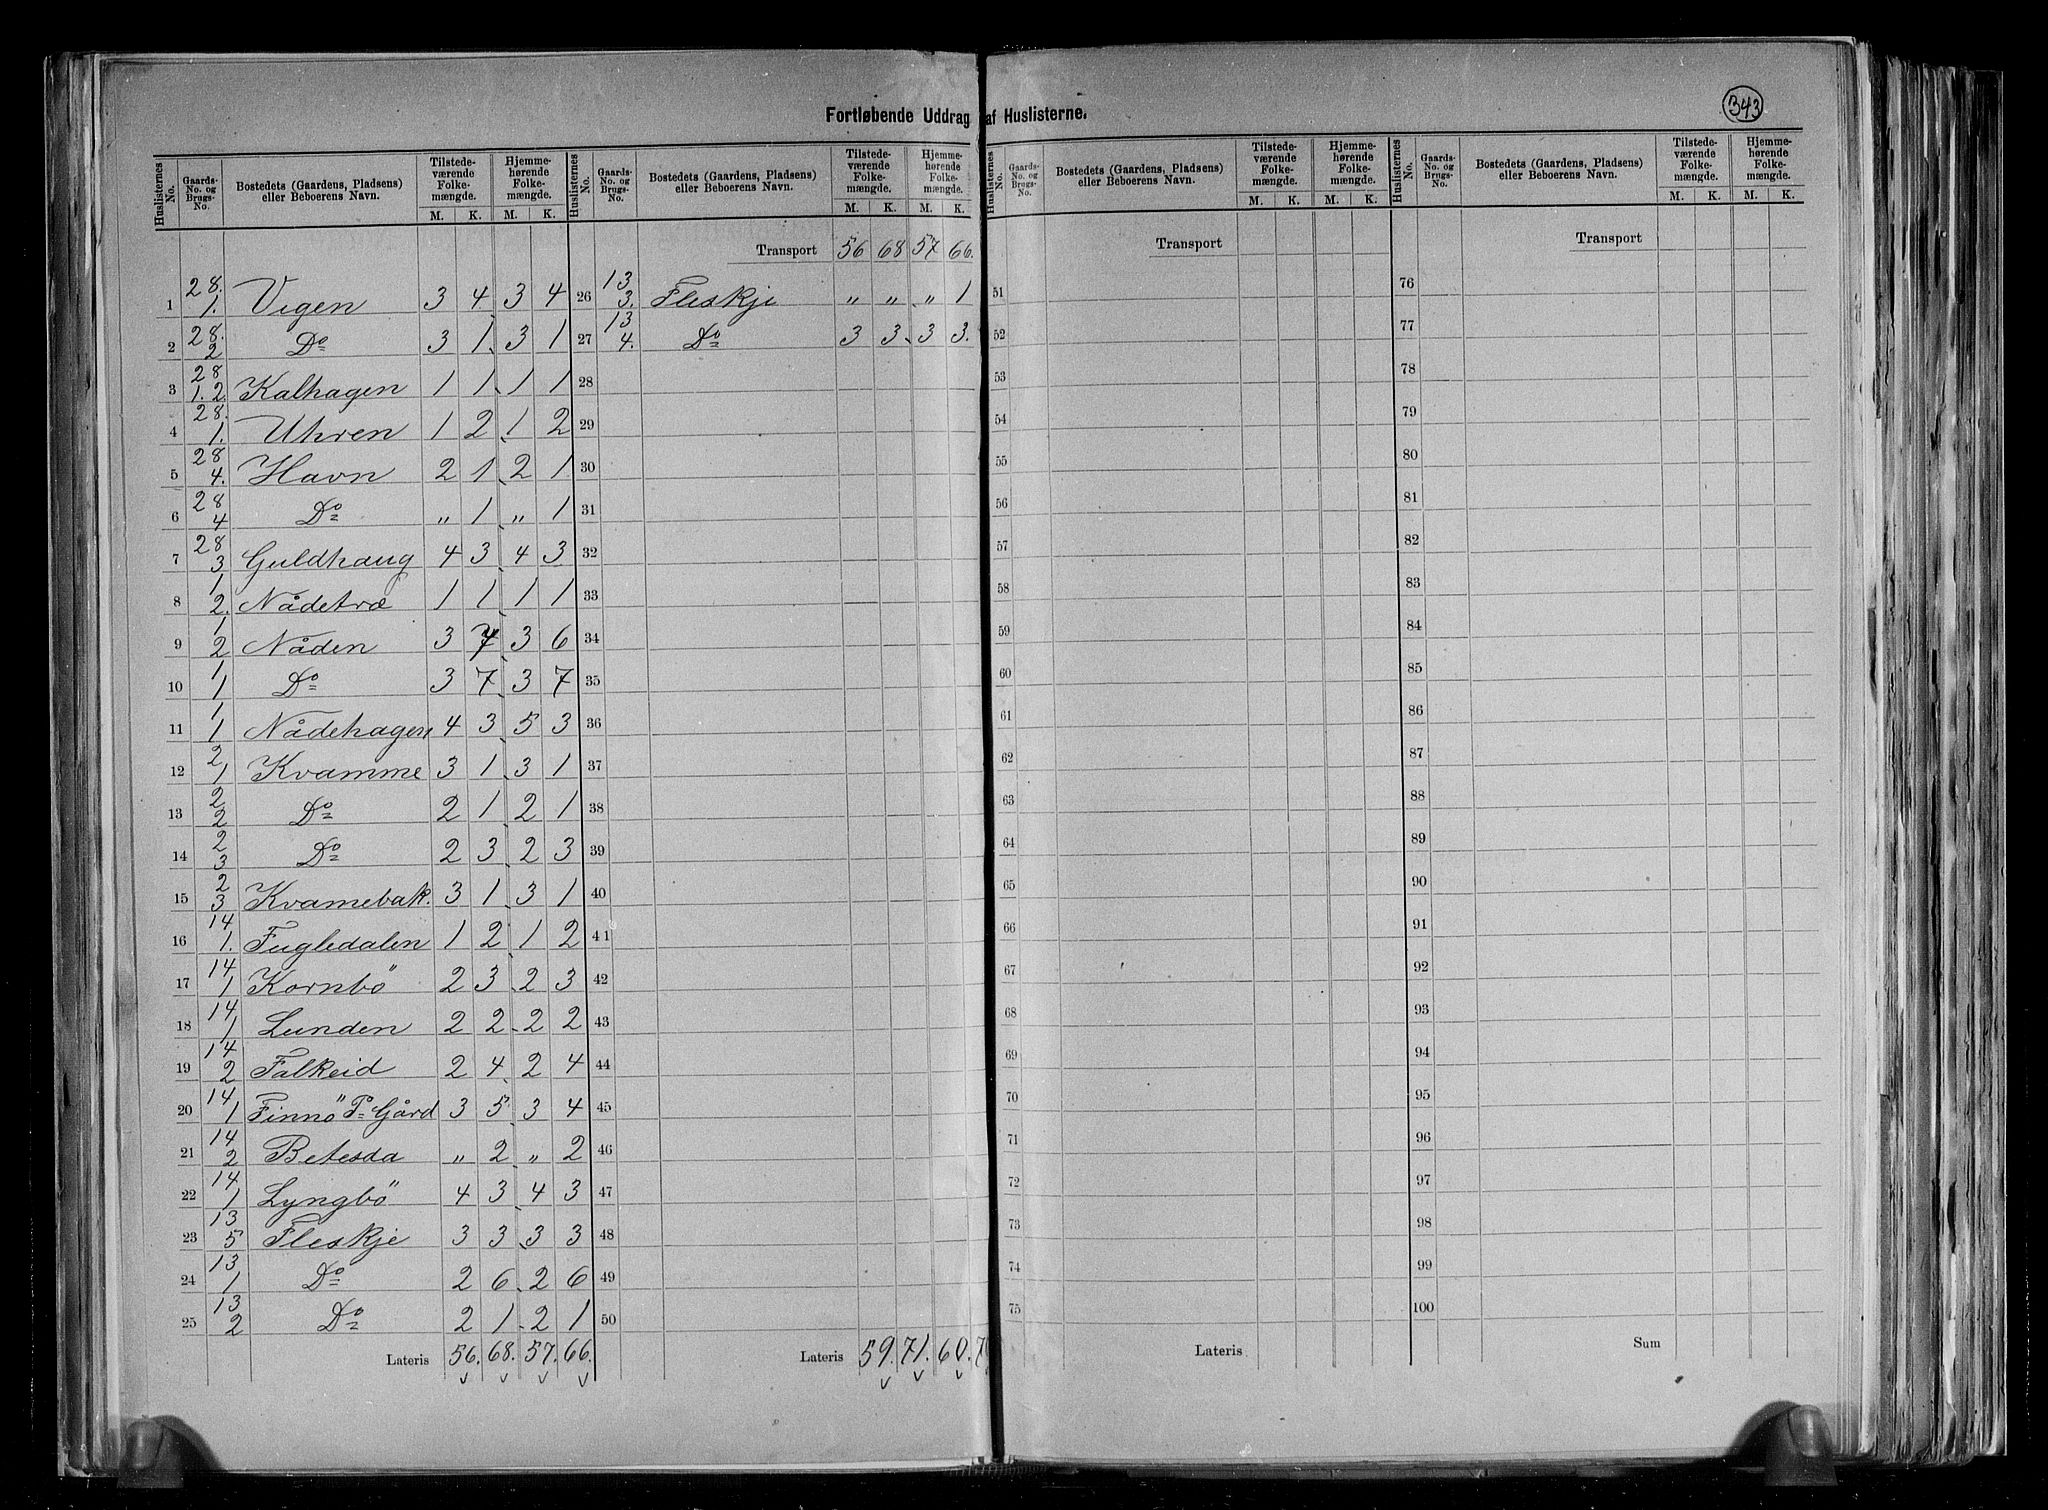 343
Fortløbende Uddrag af Huslisterne.
Huslisternes No. | Gaards-No. og Brugs-No. | Bostedets (Gaardens, Pladsens) eller Beboerens Navn. | Tilstedeværende Folkemængde. M. K. | Hjemmehørende Folkemængde. M. K.
1 | 28. 1. | Vigen | 3 | 4 | 3 | 4
2 | 28. 2 | Do | 3 | 1 | 3 | 1
3 | 28 1.2. | Kalhagen | 1 | 1 | 1 | 1
4 | 28. 1. | Uhren | 1 | 2 | 1 | 2
5 | 28 4. | Havn | 2 | 1 | 2 | 1
6 | 28 4 | Do | " | 1 | " | 1
7 | 28 3 | Guldhaug | 4 | 3 | 4 | 3
8 | 1 2. | Nådetræ | 1 | 1 | 1 | 1
9 | 1 2 | Nåden | 3 | 7 | 3 | 6
10 | 1 1 | Do | 3 | 7 | 3 | 7
11 | 1 1 | Nådehagen | 4 | 3 | 5 | 3
12 | 2 1 | Kvamme | 3 | 1 | 3 | 1
13 | 2 2 | Do | 2 | 1 | 2 | 1
14 | 2 3 | Do | 2 | 3 | 2 | 3
15 | 2 3 | Kvamebak. | 3 | 1 | 3 | 1
16 | 14 1. | Fugledalen | 1 | 2 | 1 | 2
17 | 14 1 | Kornbö | 2 | 3 | 2 | 3
18 | 14 1 | Lunden | 2 | 2 | 2 | 2
19 | 14 2 | Falkeid | 2 | 4 | 2 | 4
20 | 14 1 | Finnö P. Gård | 3 | 5 | 3 | 4
21 | 14 2 | Betesda | " | 2 | " | 2
22 | 14 1 | Lyngbö | 4 | 3 | 4 | 3
23 | 13 5 | Fleskje | 3 | 3 | 3 | 3
24 | 13 1 | Do | 2 | 6 | 2 | 6
25 | 13 2 | Do | 2 | 1 | 2 | 1
Lateris | 56. | 68. | 57. | 66.
Huslisternes No. | Gaards-No. og Brugs-No. | Bostedets (Gaardens, Pladsens) eller Beboerens Navn. | Tilstedeværende Folkemængde. M. K. | Hjemmehørende Folkemængde. M. K.
Transport | 56 | 68 | 57 | 66.
26 | 13 3. | Fleskje | " | " | " | 1
27 | 13 4. | Do | 3 | 3 | 3 | 3.
28
29
30
31
32
33
34
35
36
37
38
39
40
41
42
43
44
45
46
47
48
49
50
Lateris | 59. | 71. | 60.
Huslisternes No. | Gaards-No. og Brugs-No. | Bostedets (Gaardens, Pladsens) eller Beboerens Navn. | Tilstedeværende Folkemængde. M. K. | Hjemmehørende Folkemængde. M. K.
Transport
51
52
53
54
55
56
57
58
59
60
61
62
63
64
65
66
67
68
69
70
71
72
73
74
75
Lateris
Huslisternes No. | Gaards-No. og Brugs-No. | Bostedets (Gaardens, Pladsens) eller Beboerens Navn. | Tilstedeværende Folkemængde. M. K. | Hjemmehørende Folkemængde. M. K.
Transport
76
77
78
79
80
81
82
83
84
85
86
87
88
89
90
91
92
93
94
95
96
97
98
99
100
Sum